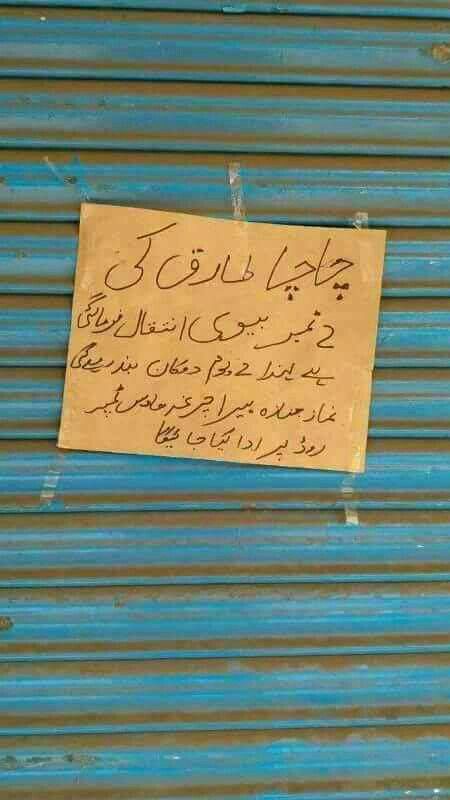 چاچا طارق کی
2 نمبر بیوی انتقال فرما گئی
ہے لہذا 2 یوم دوکان بند رہے گی
نماز جنازہ ہیرا چرغہ ہاوس ٹمبر
روڈ پر ادا کیا جائیگا